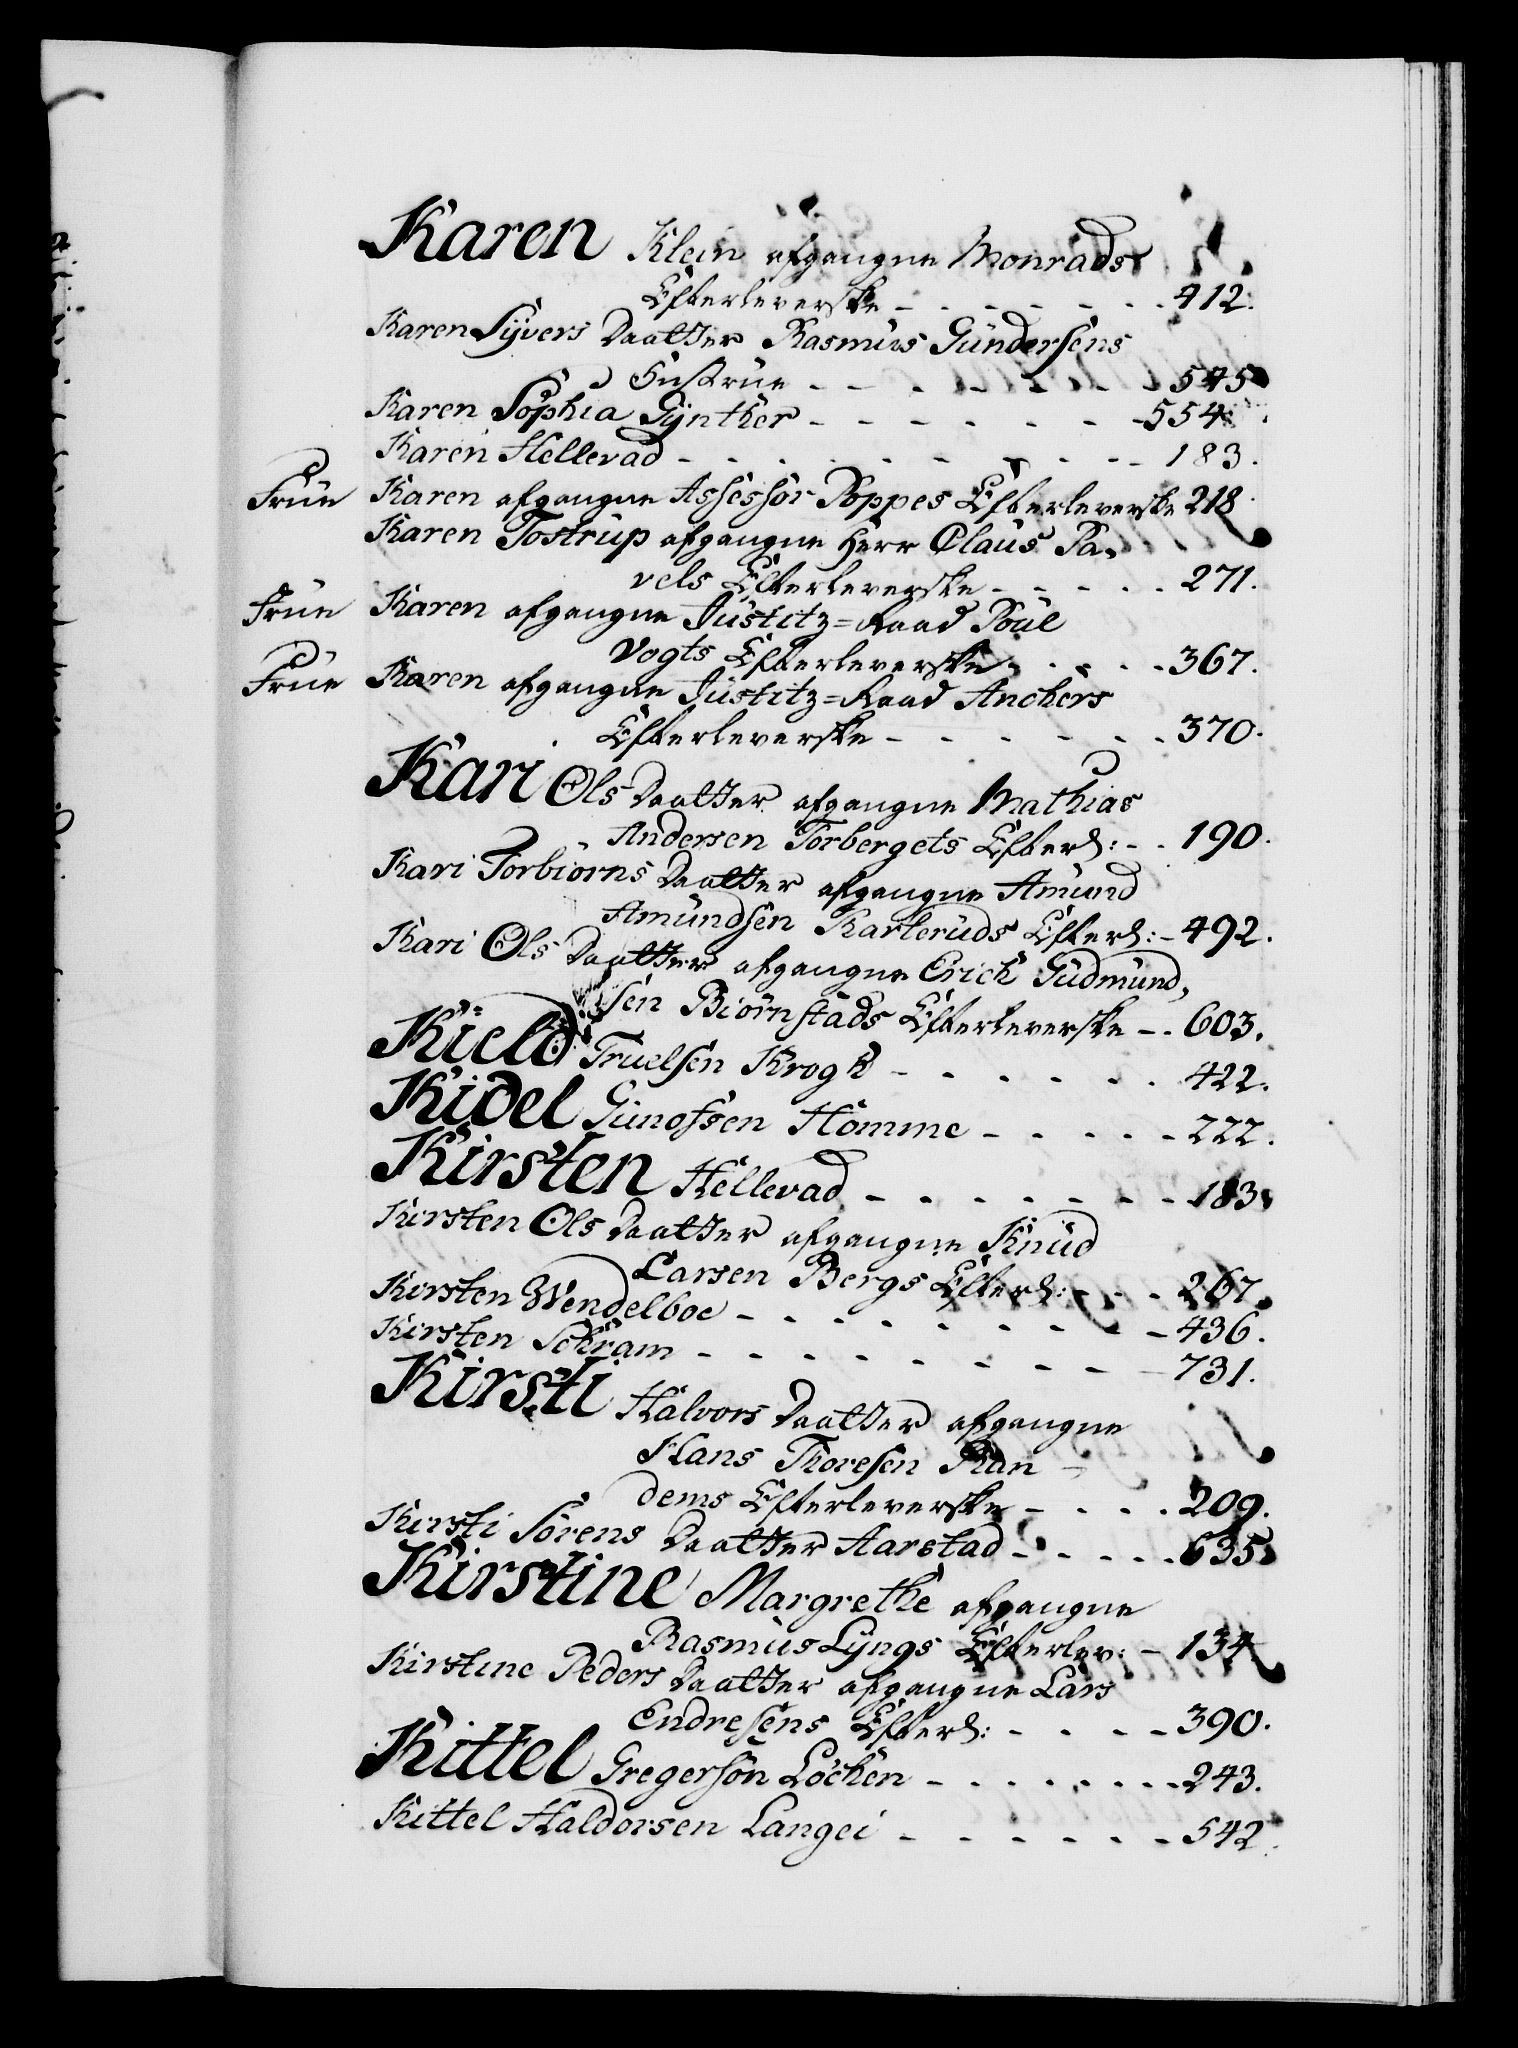 Karen Klein afgangne Monrads
Efterleverske - - - - - - 412.
Karen Syvers Daatter Rasmus Gundersens
Hustrue - - - - - - - 545
Karen Sophia Gynther - - - - - - - 554
Karen Hellevad - - - - - - - - - - 183.
Frue Karen afgangne Assessor Poppes Efterleverske 218
Karen Tostrup afgangne Herr Claus Pa-
vels Efterleverske - - - - - 271.
Frue Karen afgangne Justitz=Raad Poul
Vogts Efterleverske - - - - 367.
Frue Karen afgangne Justitz=Raad Anchers
Efterleverske - - - - - - 370.
Kari Ols Daatter afgangne Mathias
Andersen Torbergets Efterl: - - 190.
Kari Torbiørns Daatter afgangne Amund
Amundsen Karleruds Efterl: - 492.
Kari Ols Daatter afgangne Erich Gudmund,
sen Biørnstads Efterleverske - . 603.
Kield Truelsen Krogh - - - - - - 422.
Kidel Gunofsen Homme - - - - - 222.
Kirsten Hellevad - - - - - - - 183.
Kirsten Ols Daatter afgangne Knud
Larsen Bergs Efterl: - - - 267.
Kirsten Wendelboe - - - - - - - - - 436.
Kirsten Schram - - - - - - - - - 731.
Kirsti Halvors Daatter afgangne
Hans Thoresen Ran -
dems Efterleverske - - - - 209.
Kirsti Sørens Daatter Aarstad - - - - - 635
Kirstine Margrethe afgangne
Rasmus Lyngs Efterlev: - 134
Kirstine Peders Daatter afgangne Lars
Endresens Efterl: - - - - 390.
Kittel Gregersøn Løchen - - - - - - - 243.
Kittel Haldorsen Langei - - - - - - 542.